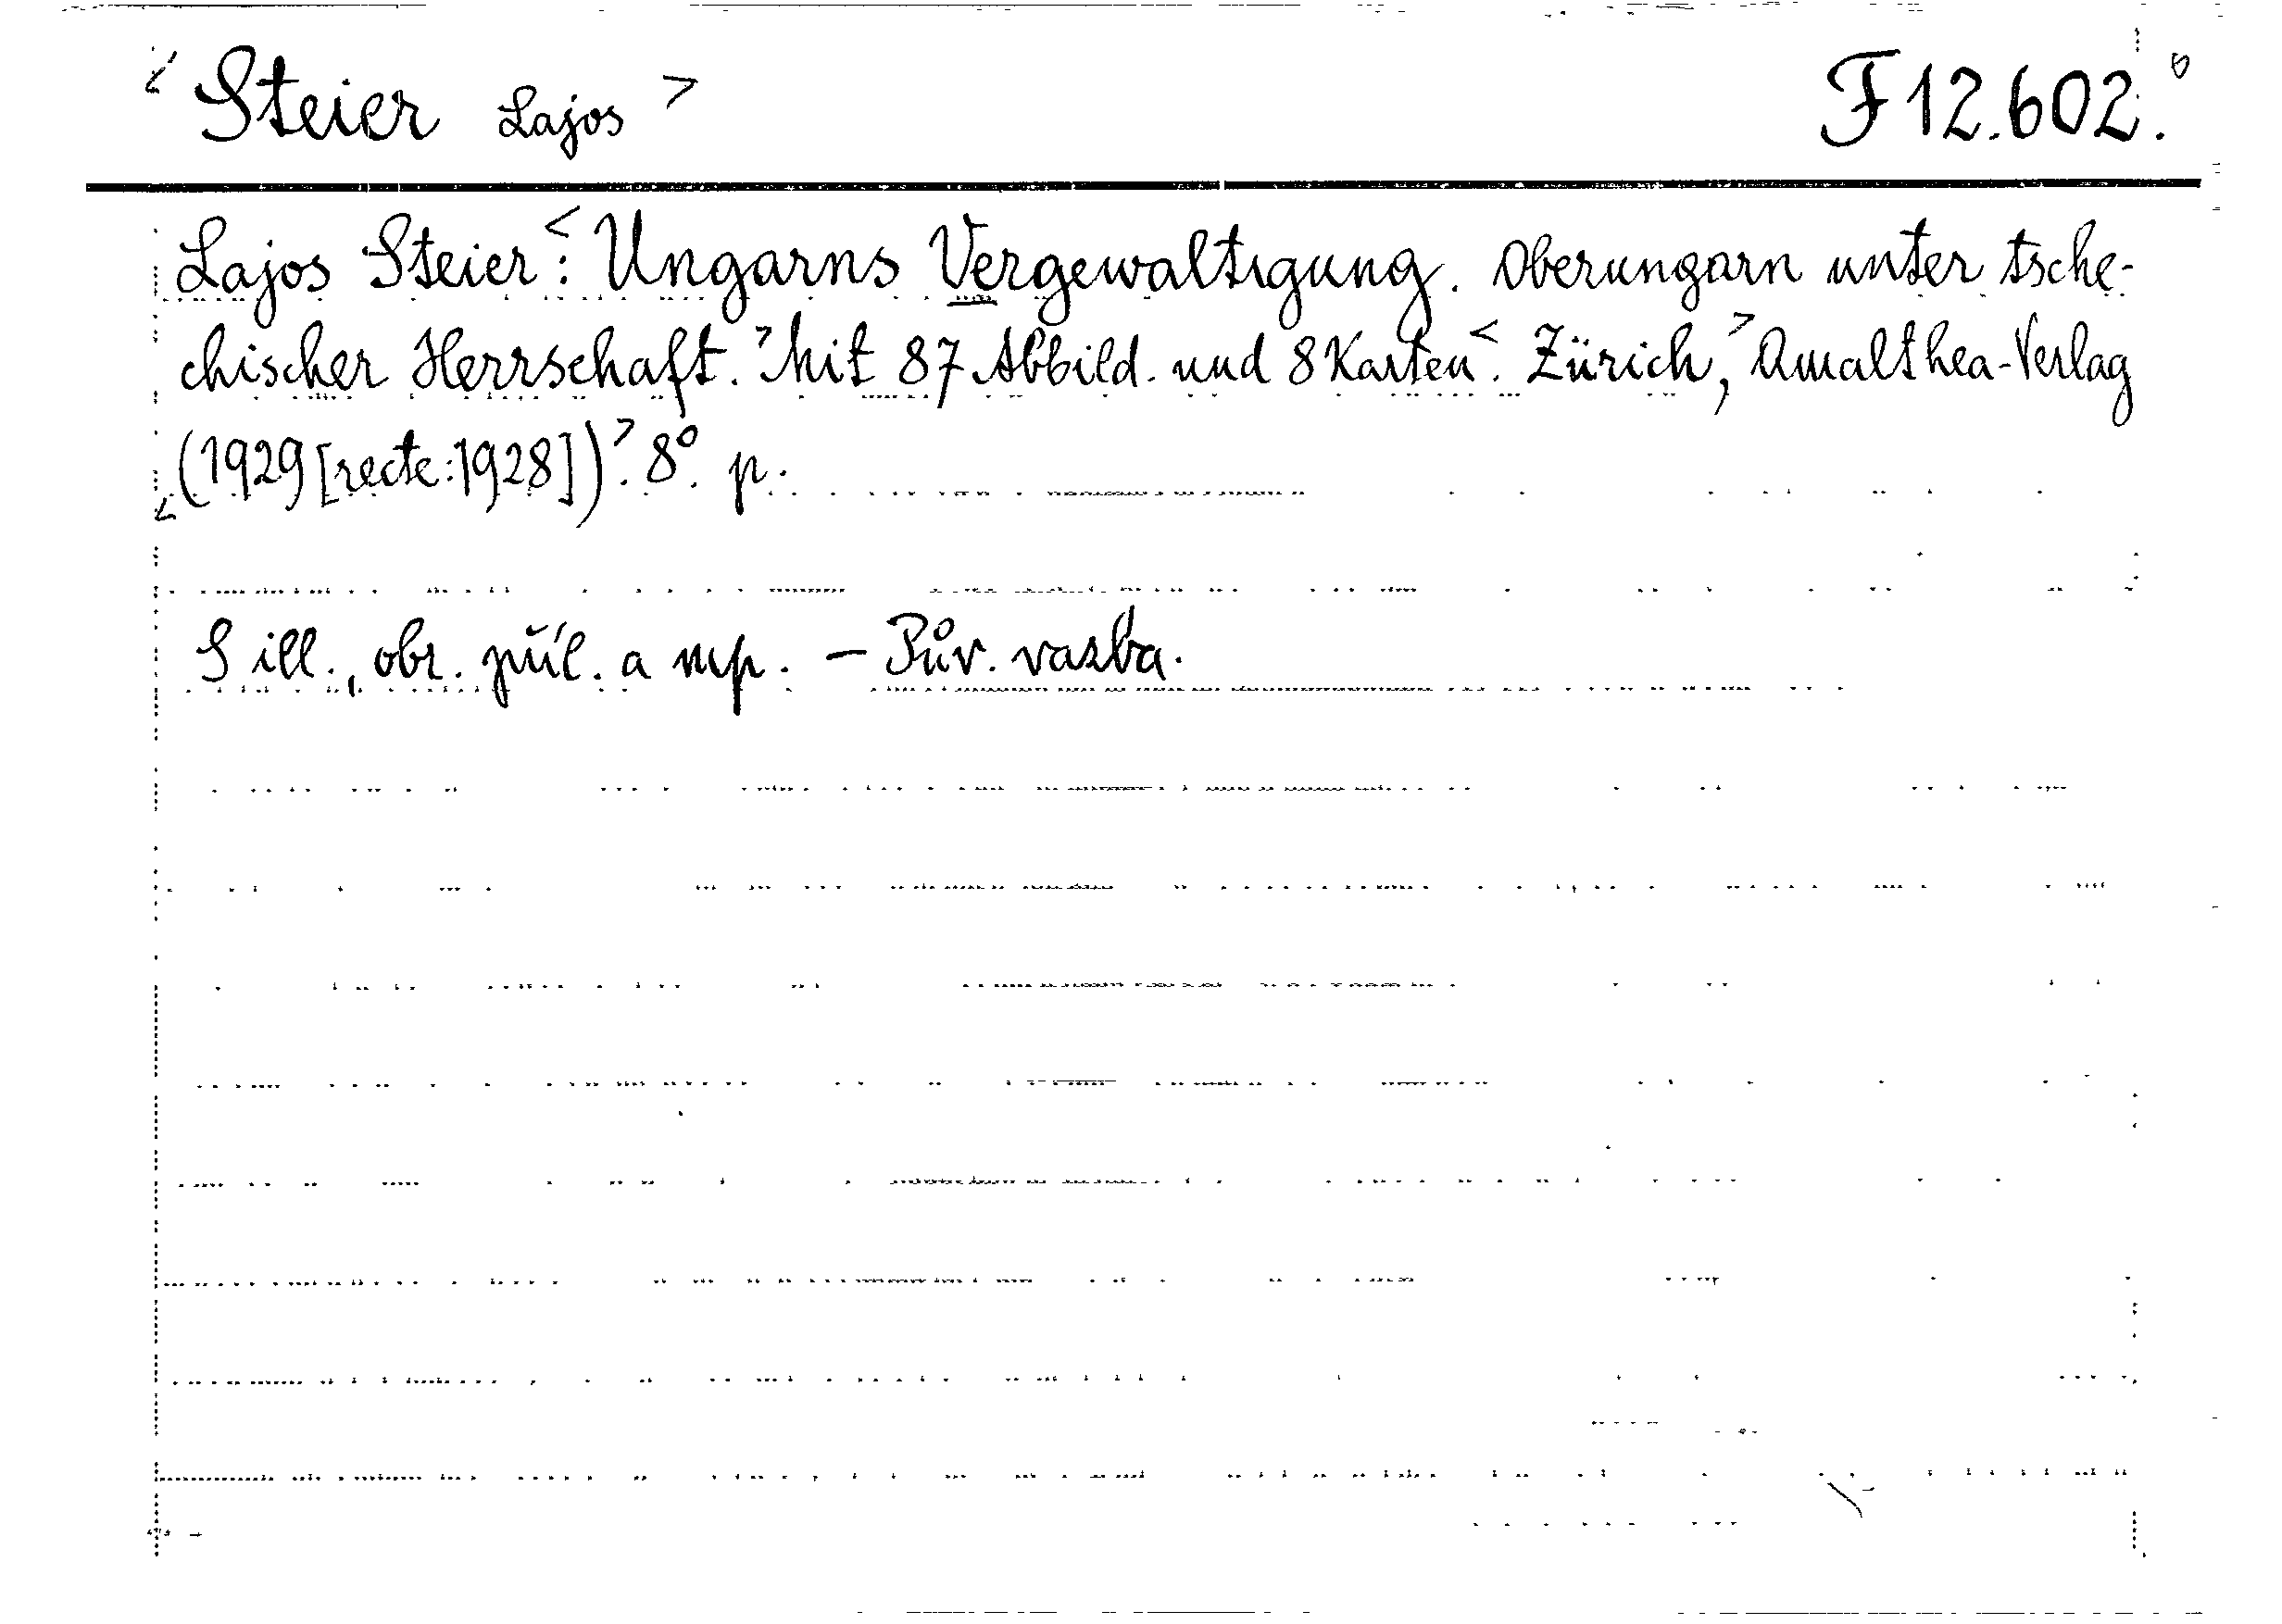 < Steier Lajos > F 12.602.
Lajos Steier<: Ungarns Vergewaltigung. Oberungarn unter tsche-
chischer Herrschaft.> Mit 87 Abbild. und 8 Karten<. Zürich,> Amalthea-Verlag
<(1929 [recte: 1928])>. 8°. p.
S ill., obr. příl. a mp. – Pův. vazba.